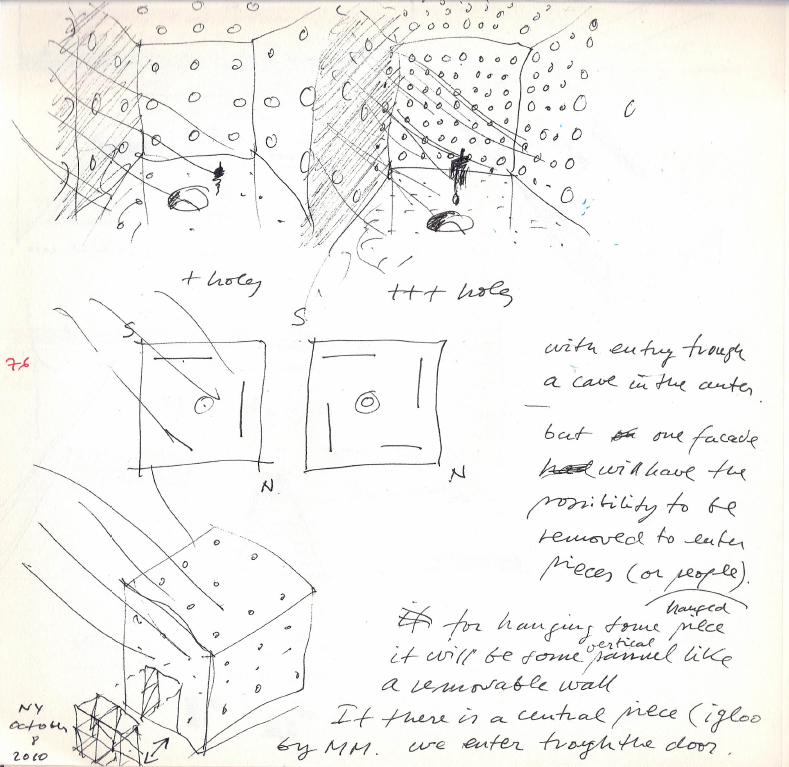 + holes
+++ holes
S
S
7,6
N
N
with entry trough
a cave in the center.
but on one facade
had will have the
possibility to be
removed to enter
pieces (or people).
hanged
if for hanging some piece
vertical
it will be some pannel like
a removable wall
If there is a central piece (igloo
by MM. we enter trough the door.
NY
October
8
2010